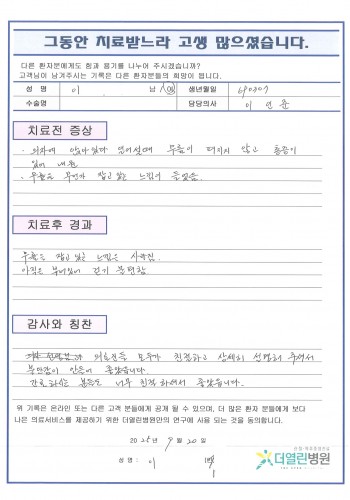 그동안 치료받느라 고생 많으셨습니다.
다른 환자분에게도 힘과 용기를 나누어 주시겠습니까?
고객님이 남겨주시는 기록은 다른 환자분들의 희망이 됩니다.
성 명 이 남 / 여 생년월일 690307
수술명 담당의사 이 연 훈
치료전 증상
· 의자에 앉아 있다 일어설때 무릎이 펴지지 않고 통증이
있어 내원
· 무릎을 무언가 잡고 있는 느낌이 들었음.
치료후 경과
무릎을 잡고 있는 느낌은 사라짐.
아직은 부어있어 걷기 불편함
감사와 칭찬
의료진들 모두가 친절하고 상세히 설명해 주셔서
불안감이 안들어 좋았습니다.
간호하시는 분들도 너무 친절하셔서 좋았습니다.
위 기록은 온라인 또는 다른 고객 분들에게 공개 될 수 있으며, 더 많은 환자 분들에게 보다
나은 의료서비스를 제공하기 위한 더열린병원만의 연구에 사용 되는 것을 동의합니다.
2025년 9월 20일
성 명 : 이
더열린병원